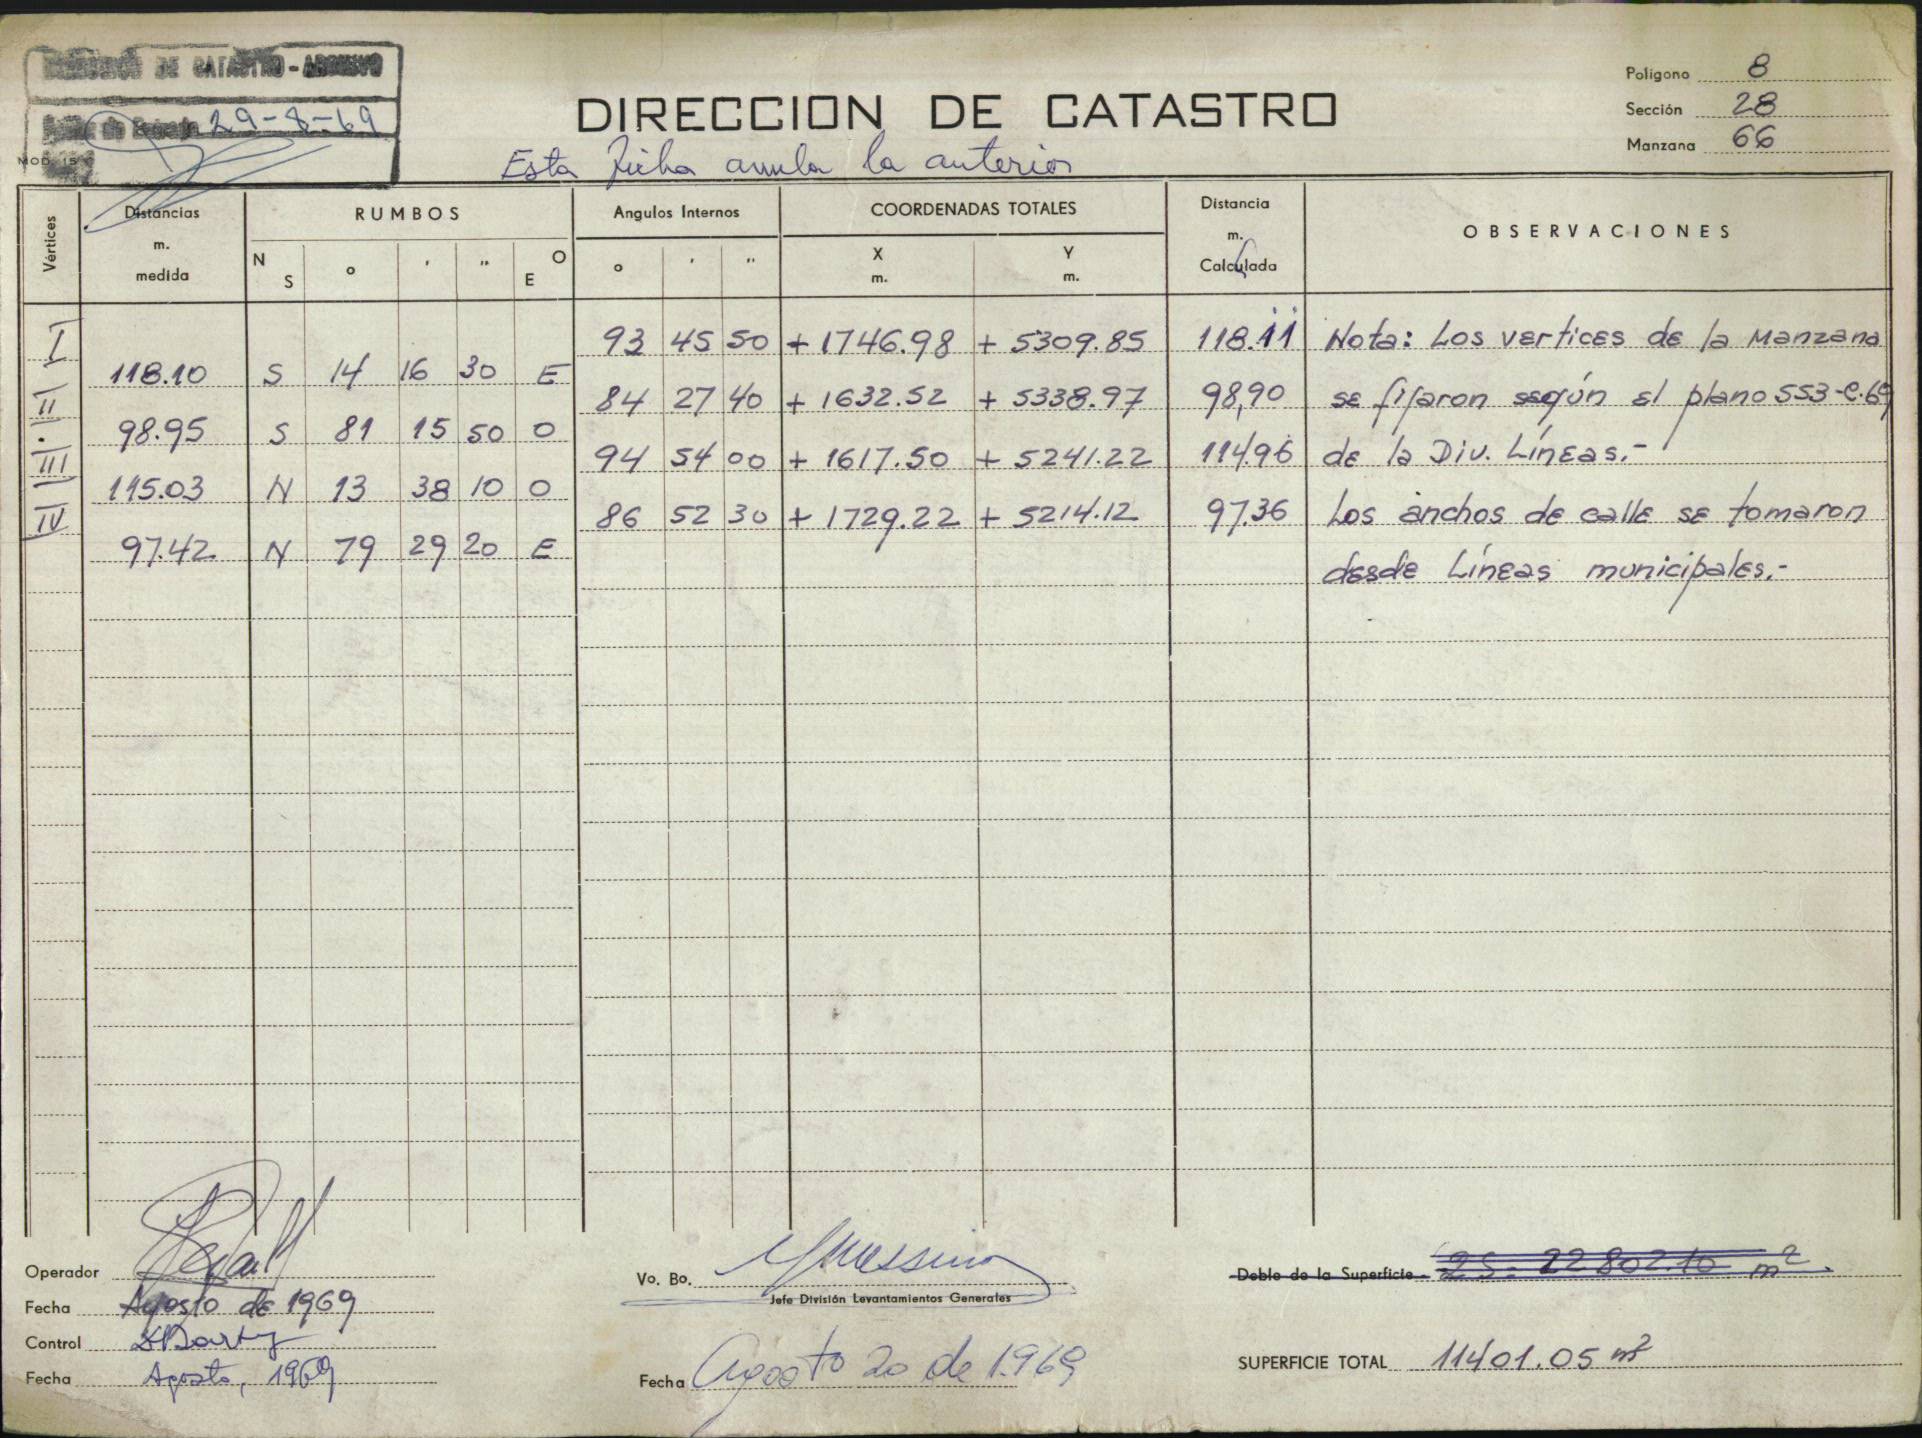 DIRECCION DE CATASTRO - ARCHIVO
29-8-69
MOD. 15
DIRECCION DE CATASTRO
Esta ficha anula la anterior
Polígono 8
Sección 28
Manzana 66
Vértices
Distancias m. medida
RUMBOS
N S ° ' " O E
Angulos Internos
° ' "
COORDENADAS TOTALES
X m. Y m.
Distancia m. Calculada
OBSERVACIONES
I 93 45 50 + 1746.98 + 5309.85 118.11 Nota: Los vertices de la Manzana
118.10 S 14 16 30 E
II 84 27 40 + 1632.52 + 5338.97 98,90 se fijaron según el plano 553-C-69
98.95 S 81 15 50 O
III 94 54 00 + 1617.50 + 5241.22 114.96 de la Div. Líneas.-
115.03 N 13 38 10 O
IV 86 52 30 + 1729.22 + 5214.12 97.36 Los anchos de calle se tomaron
97.42 N 79 29 20 E
desde Líneas municipales.-
Operador
Fecha Agosto de 1969
Control
Fecha Agosto, 1969
Vo. Bo.
Jefe División Levantamientos Generales
Fecha Agosto 20 de 1.969
Doble de la Superficie 2S = 22802.10 m².
SUPERFICIE TOTAL 11401.05 m²